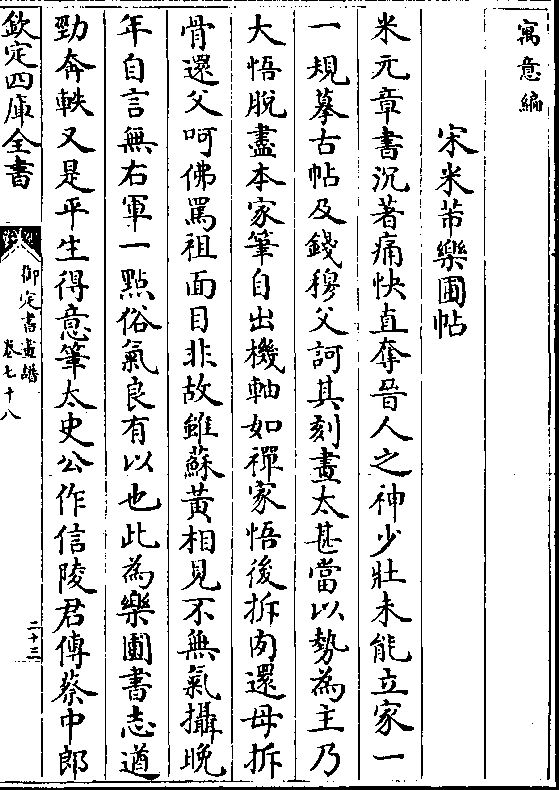 寓意編
宋米芾樂圃帖
米元章書沉著痛快直奪晉人之神少壯未能立家一
一規摹古帖及錢穆父訶其刻畫太甚當以勢為主乃
大悟脫盡本家筆自出機軸如禪家悟後拆肉還母拆
骨還父呵佛罵祖面目非故雖蘇黃相見不無氣攝晚
年自言無右軍一點俗氣良有以也此為樂圃書志遒
勁奔軼又是平生得意筆太史公作信陵君傳蔡中郎
欽定四庫全書
御定書畫譜
卷七十八
二十三